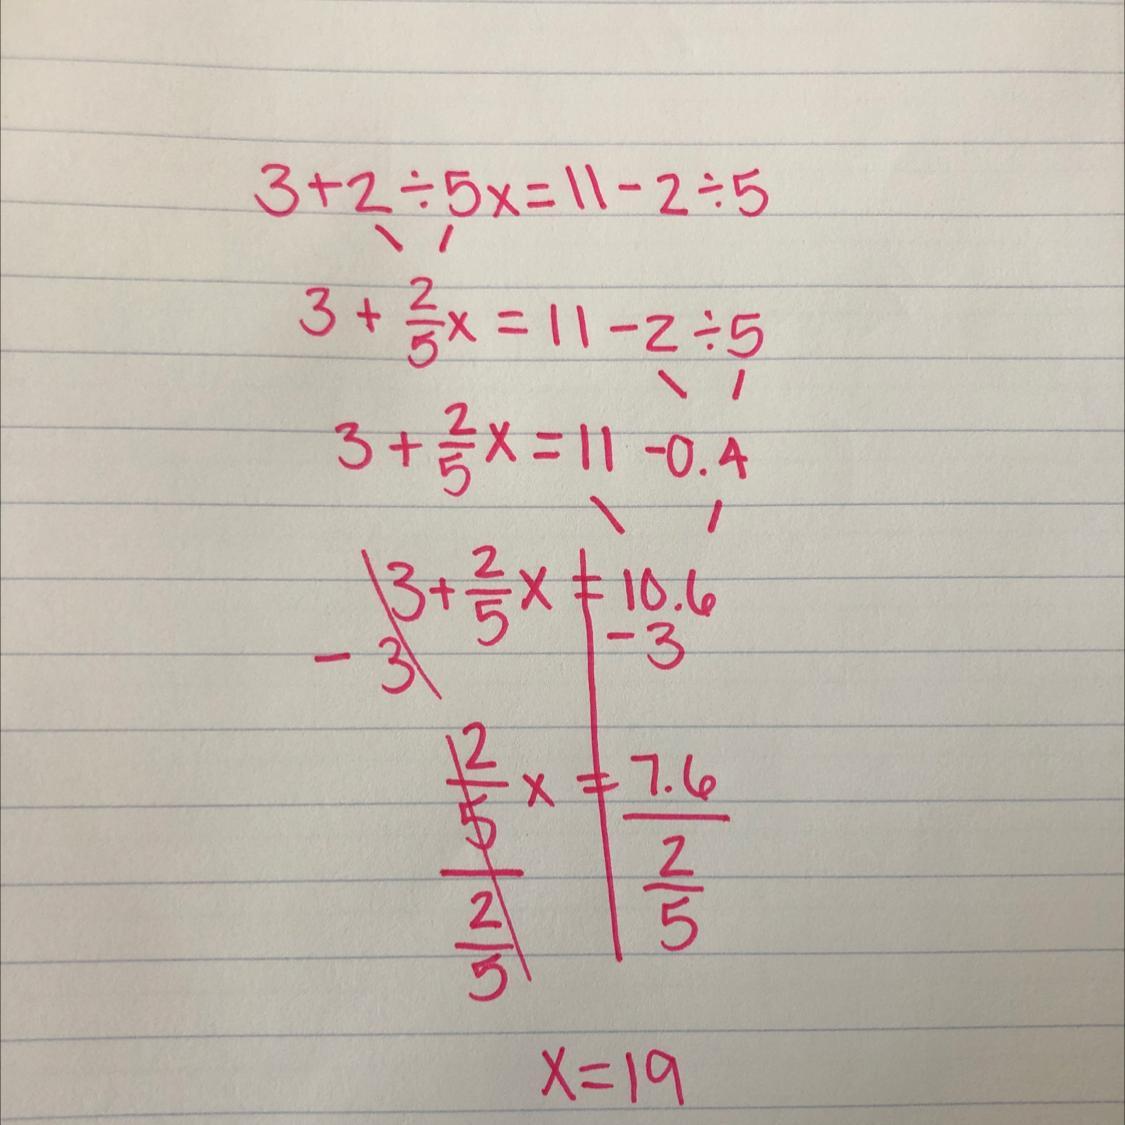 3+2÷5x=11-2÷5
3+2/5x=11-2÷5
3+2/5x=11-0.4
3+2/5x=10.6
-3 -3
2/5x=7.6
2/5 2/5
x=19